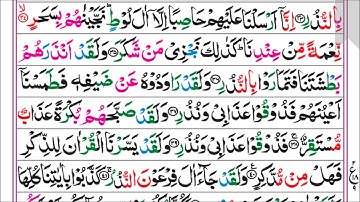 بِالنُّذُرِ ﴿۳۳﴾ اِنَّاۤ اَرْسَلْنَا عَلَيْهِمْ حَاصِبًا اِلَّاۤ اٰلَ لُوْطٍ ؕ نَجَّيْنٰهُمْ بِسَحَرٍ ﴿۳۴﴾
نِّعْمَةً مِّنْ عِنْدِنَا ؕ كَذٰلِكَ نَجْزِيْ مَنْ شَكَرَ ﴿۳۵﴾ وَلَقَدْ اَنْذَرَهُمْ
بَطْشَتَنَا فَتَمَارَوْا بِالنُّذُرِ ﴿۳۶﴾ وَلَقَدْ رَاوَدُوْهُ عَنْ ضَيْفِهٖ فَطَمَسْنَاۤ
اَعْيُنَهُمْ فَذُوْقُوْا عَذَابِيْ وَنُذُرِ ﴿۳۷﴾ وَلَقَدْ صَبَّحَهُمْ بُكْرَةً عَذَابٌ
مُّسْتَقِرٌّ ﴿۳۸﴾ فَذُوْقُوْا عَذَابِيْ وَنُذُرِ ﴿۳۹﴾ وَلَقَدْ يَسَّرْنَا الْقُرْاٰنَ لِلذِّكْرِ
فَهَلْ مِنْ مُّدَّكِرٍ ﴿۴۰﴾ وَلَقَدْ جَآءَ اٰلَ فِرْعَوْنَ النُّذُرُ ﴿۴۱﴾ كَذَّبُوْا بِاٰيٰتِنَا كُلِّهَا